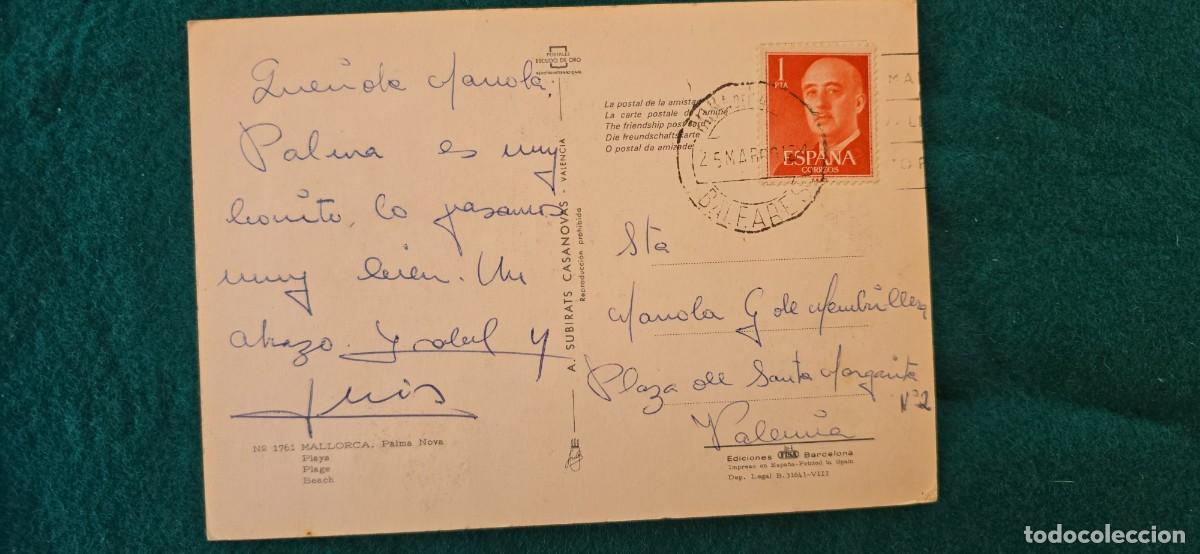 Querida Manola,
Palma es muy
bonito, lo pasamos
muy bien. Un
abrazo. Ysabel y
Luis
Nº 1761 MALLORCA. Palma Nova
Playa
Plage
Beach
POSTALES
ESCUDO DE ORO
A. SUBIRATS CASANOVAS - VALENCIA
Reproducción prohibida
La postal de la amistad
La carte postale de l'amitié
The friendship postcard
Die freundschaftskarte
O postal da amizade
1
PTA
ESPAÑA
CORREOS
BALEARES
Sta
Manola G de Membrillera
Plaza de Santa Margarita
Nº 2
Valencia
Ediciones FISA Barcelona
Impreso en España-Printed in Spain
Dep. Legal B. 31641-VIII
todocoleccion